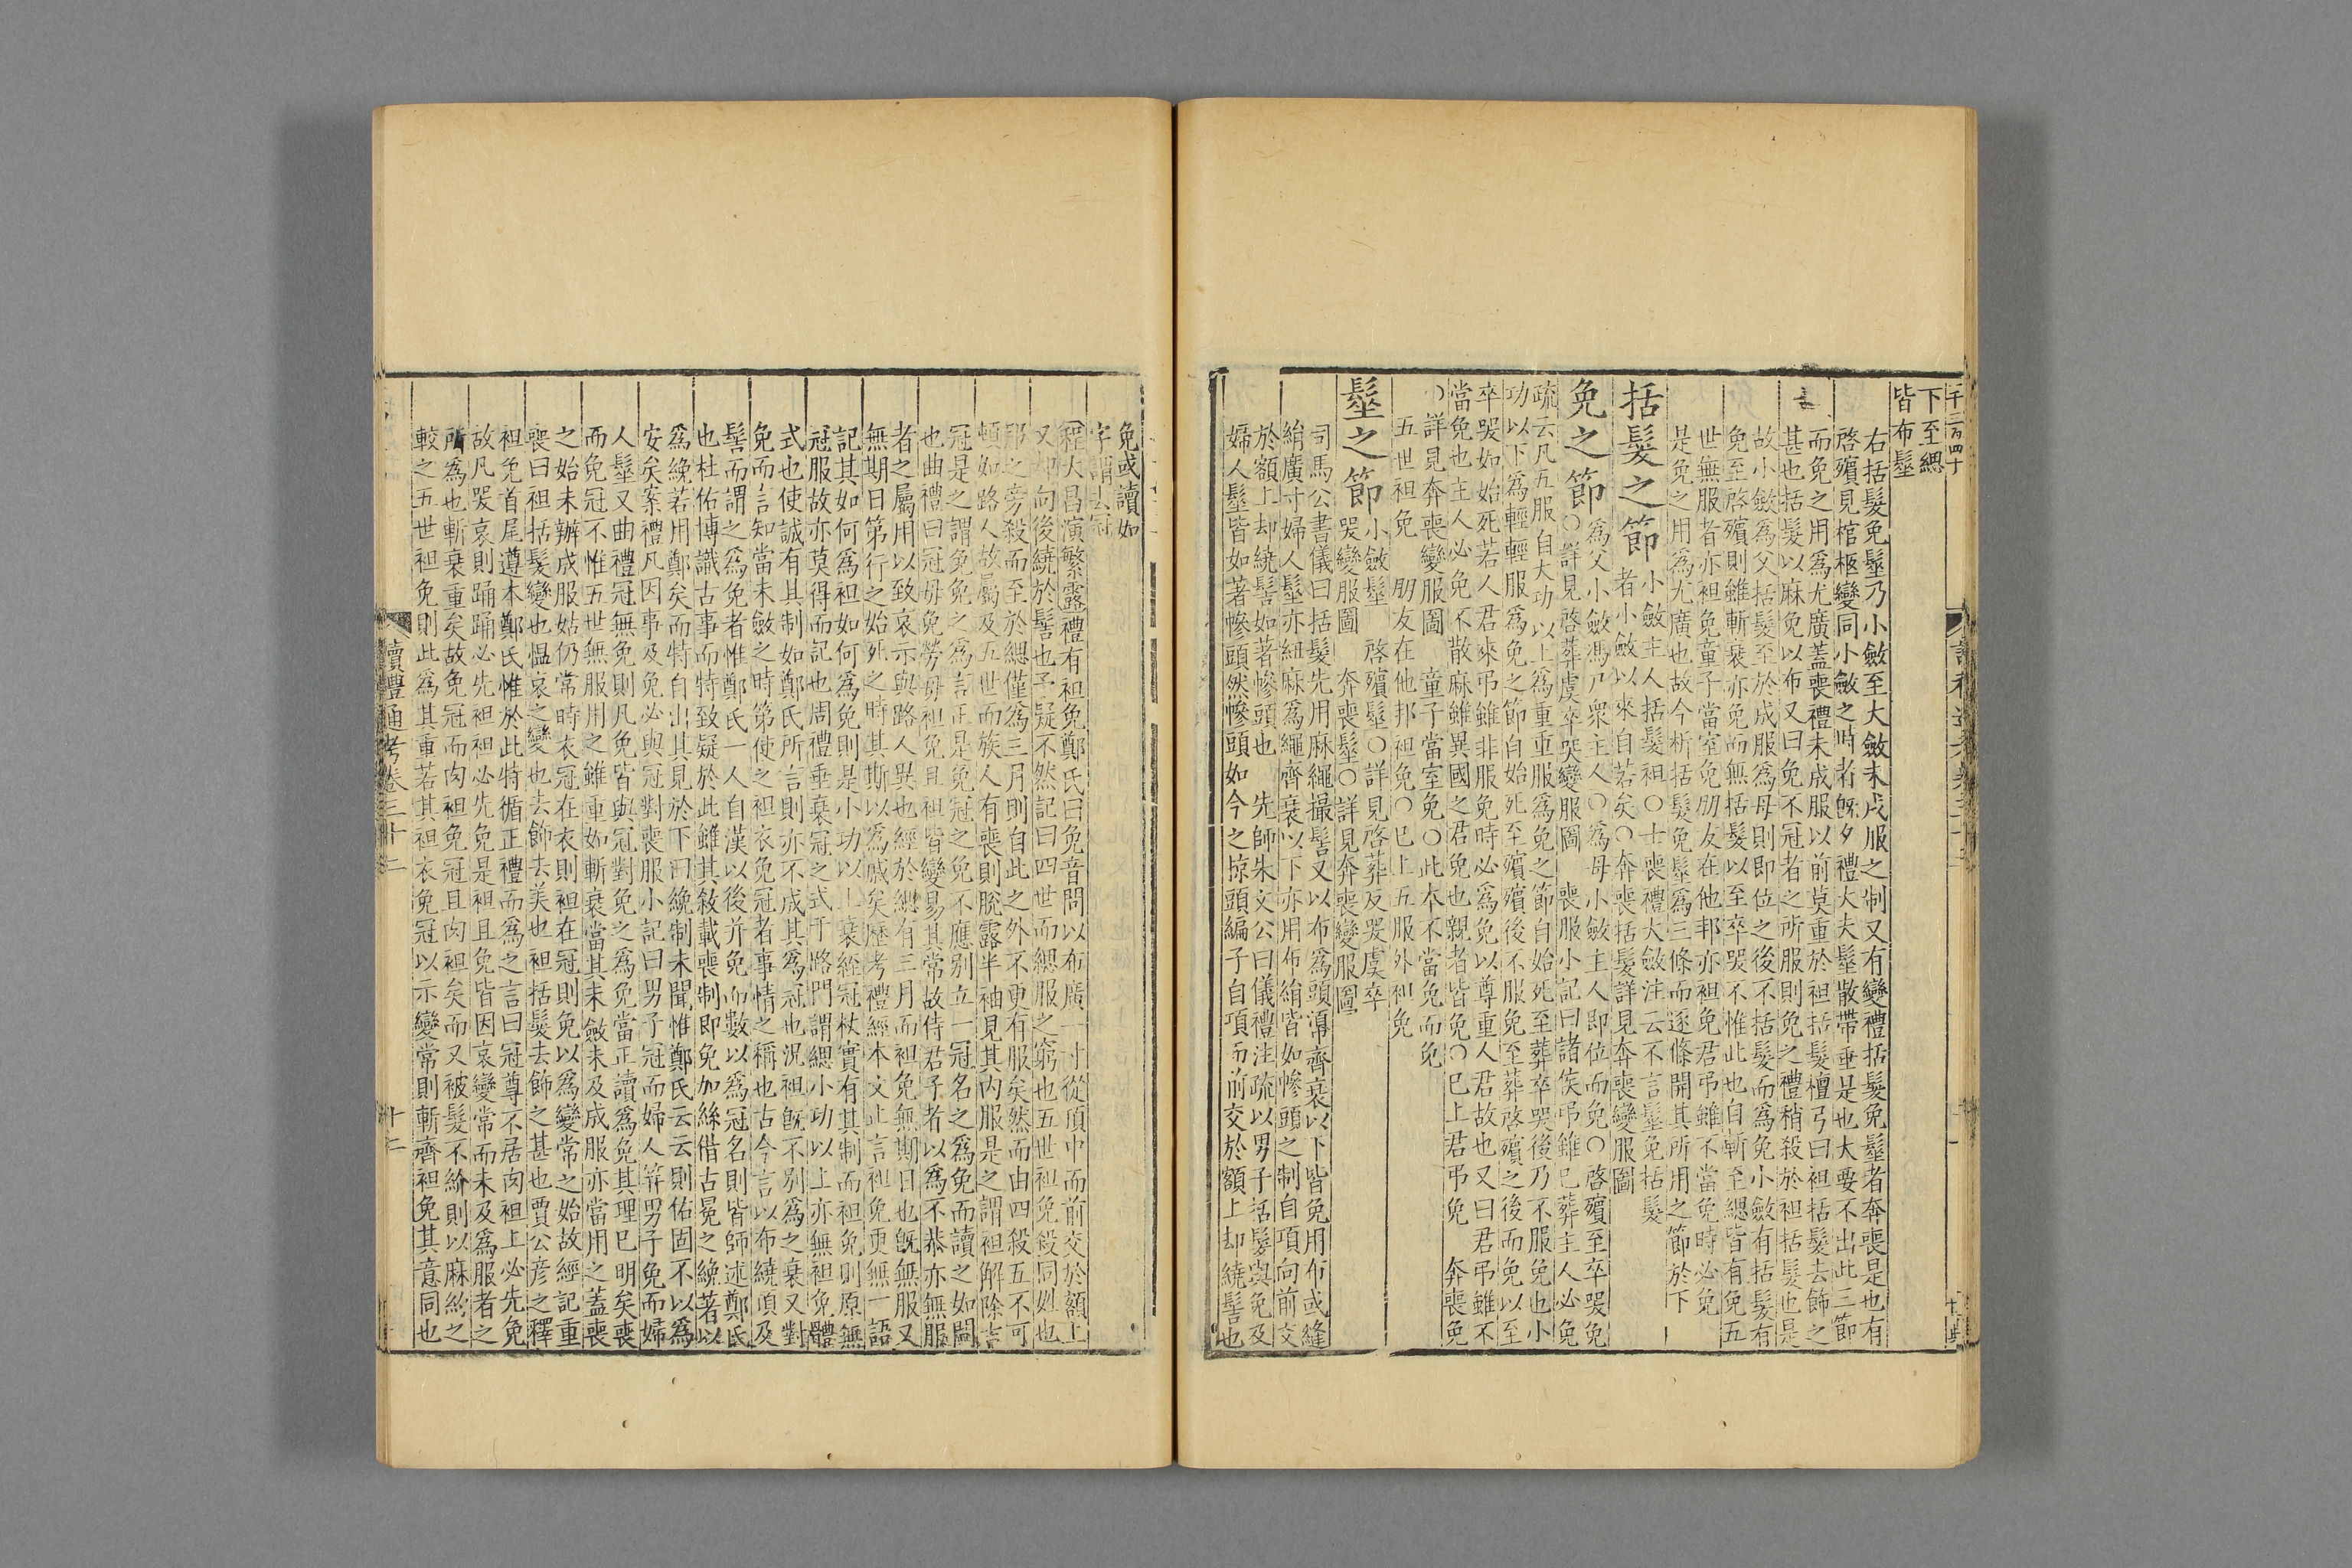 下至緦
皆布髽
右括髮免髽乃小斂至大斂未成服之制又有變禮括髮免髽者奔喪是也有
啓殯見棺柩變同小斂之時者旣夕禮大夫髽散帶垂是也大要不出此三節
而免之用爲尤廣蓋喪禮未成服以前莫重於袒括髮檀弓曰袒括髮去飾之
甚也括髮以麻免以布又曰免不冠者之所服則免之禮稍殺於袒括髮也是
故小斂爲父括髮至於成服爲母則即位之後不括髮而爲免小斂有括髮有
免至啓殯則雖斬衰亦免而無括髮以至卒哭不惟此也自斬至緦皆有免五
世無服者亦袒免童子當室免朋友在他邦亦袒免君弔雖不當免時必免
是免之用爲尤廣也故今析括髮免髽爲三條而逐條開其所用之節於下
括髮之節
小斂主人括髮袒○士喪禮大斂注云不言髽免括髮
者小斂以來自若矣○奔喪括髮詳見奔喪變服圖
免之節
爲父小斂馮尸衆主人○爲母小斂主人即位而免○啓殯至卒哭免
○詳見啓葬虞卒哭變服圖　喪服小記曰諸侯弔雖已葬主人必免
疏云凡五服自大功以上爲重重服爲免之節自始死至葬卒哭後乃不服免也小
功以下爲輕輕服爲免之節自始死至殯殯後不服免至葬啓殯之後而免以至
卒哭如始死若人君來弔雖非服免時必爲免以尊重人君故也又曰君弔雖不
當免也主人必免不散麻雖異國之君免也親者皆免○已上君弔免　奔喪免
○詳見奔喪變服圖　童子當室免○此本不當免而免
五世袒免　朋友在他邦袒免○已上五服外袒免
髽之節
小斂髽　啓殯髽○詳見啓葬反哭虞卒
哭變服圖　奔喪髽○詳見奔喪變服圖
司馬公書儀曰括髮先用麻繩撮髻又以布爲頭㡓齊衰以下皆免用布或縫
絹廣寸婦人髽亦細麻爲繩齊衰以下亦用布絹皆如幓頭之制自項向前交
於額上却繞髻如著幓頭也　先師朱文公曰儀禮注疏以男子括髮與免及
婦人髽皆如著幓頭然幓頭如今之掠頭編子自項而前交於額上却繞髻也
免或讀如
字謂去冠
程大昌演繁露禮有袒免鄭氏曰免音問以布廣一寸從頂中而前交於額上
又却向後繞於髻也予疑不然記曰四世而緦服之窮也五世袒免殺同姓也
耶之旁殺而至於緦僅爲三月則自此之外不更有服矣然而由四殺五不可
頓如路人故屬及五世而族人有喪則脫露半袖見其內服是之謂袒解除吉
冠是之謂免免之爲言正是免冠之免不應别立一冠名之爲免而讀之如問
也曲禮曰冠毋免勞毋袒免且袒皆變易其常故侍君子者以爲不恭亦無服
者之屬用以致哀示與路人異也經於緦有三月而袒免無期日也旣無服又
無期日第行之始死之時其斯以爲戚矣歷考禮經本文止言袒免更無一語
記其如何爲袒如何爲免則是小功以上衰絰冠杖實有其制而袒免則原無
冠服故亦莫得而記也周禮垂衰冠之式于路門謂緦小功以上亦無袒免體
式也使誠有其制如鄭氏所言則亦不成其爲冠也況袒旣不别爲之衰又對
免而言知當未斂之時第使之袒衣免冠者事情之稱也古今言以布繞項及
髻而謂之爲免者惟鄭氏一人自漢以後并免而數以爲冠名則皆師述鄭氏
也杜佑博識古事而特致疑於此雖其敘載喪制即免加絲借古冕之絻著以
爲絻若用鄭矣而特自出其見於下曰絻制未聞惟鄭氏云云則佑固不以爲
安矣案禮凡因事及免必與冠對喪服小記曰男子冠而婦人筓男子免而婦
人髽又曲禮冠無免則凡免皆與冠對免之爲免當正讀爲免其理已明矣喪
而免冠不惟五世無服用之雖重如斬衰當其未斂未及成服亦當用之蓋喪
之始未辦成服姑仍常時衣冠在衣則袒在冠則免以爲變常之始故經記重
喪曰袒括髮變也慍哀之變也去飾去美也袒括髮去飾之甚也賈公彥之釋
袒免首尾遵本鄭氏惟於此特循正禮而爲之言曰冠尊不居肉袒上必先免
故凡哭哀則踊踊必先袒袒必先免是袒且免皆因哀變常而未及爲服者之
所爲也斬衰重矣故免冠而肉袒免冠且肉袒矣而又被髮不紒則以麻約之
較之五世袒免則此爲其重若其袒衣免冠以示變常則斬齊袒免其意同也
讀禮通考卷三十二
十二